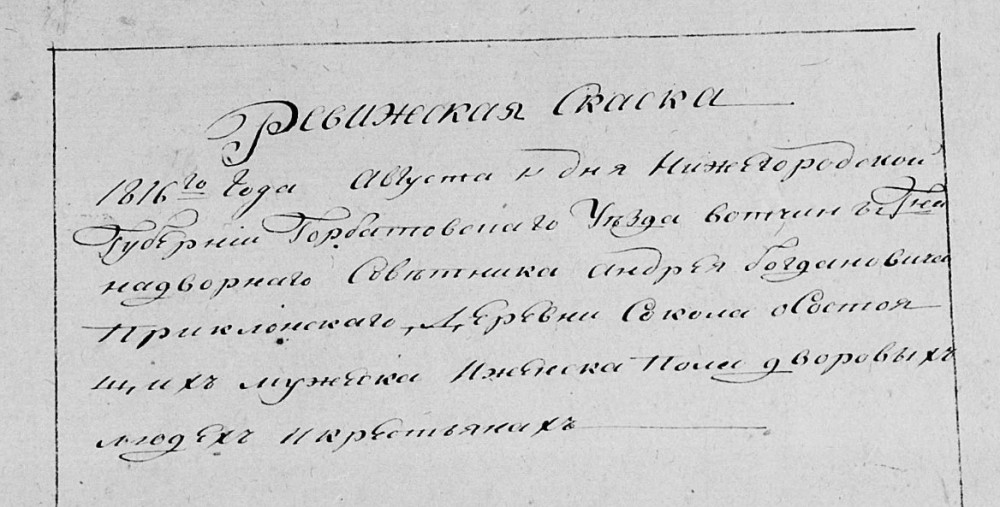 Ревижская Скаска
1816го Года Августа дня Нижегородской
Губернiи Горбатовскаго Уѣзда вотчинъ Гна
надворнаго Совѣтника Андрея Богдановича
Приклонскаго, Деревни Сокола оСостоя
щихъ мужеска Иженска Пола дворовыхъ
людехъ Икрестьянахъ